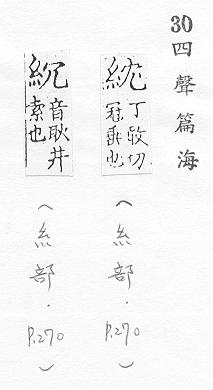 30 四聲篇海
紞 丁敢切
冠垂也
(糸部．P.270)
音耿井
索也
(糸部．P.270)